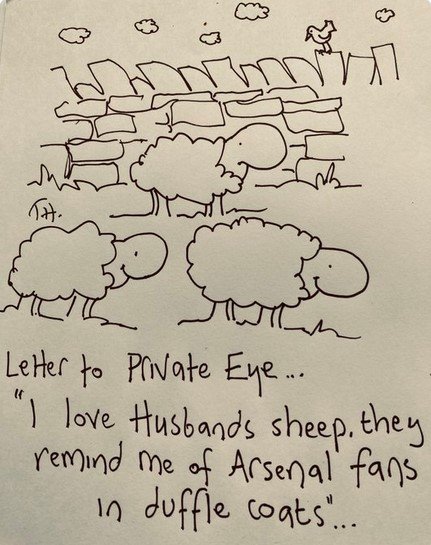 TH.
Letter to Private Eye...
"I love Husbands sheep, they
remind me of Arsenal fans
in duffle coats"...